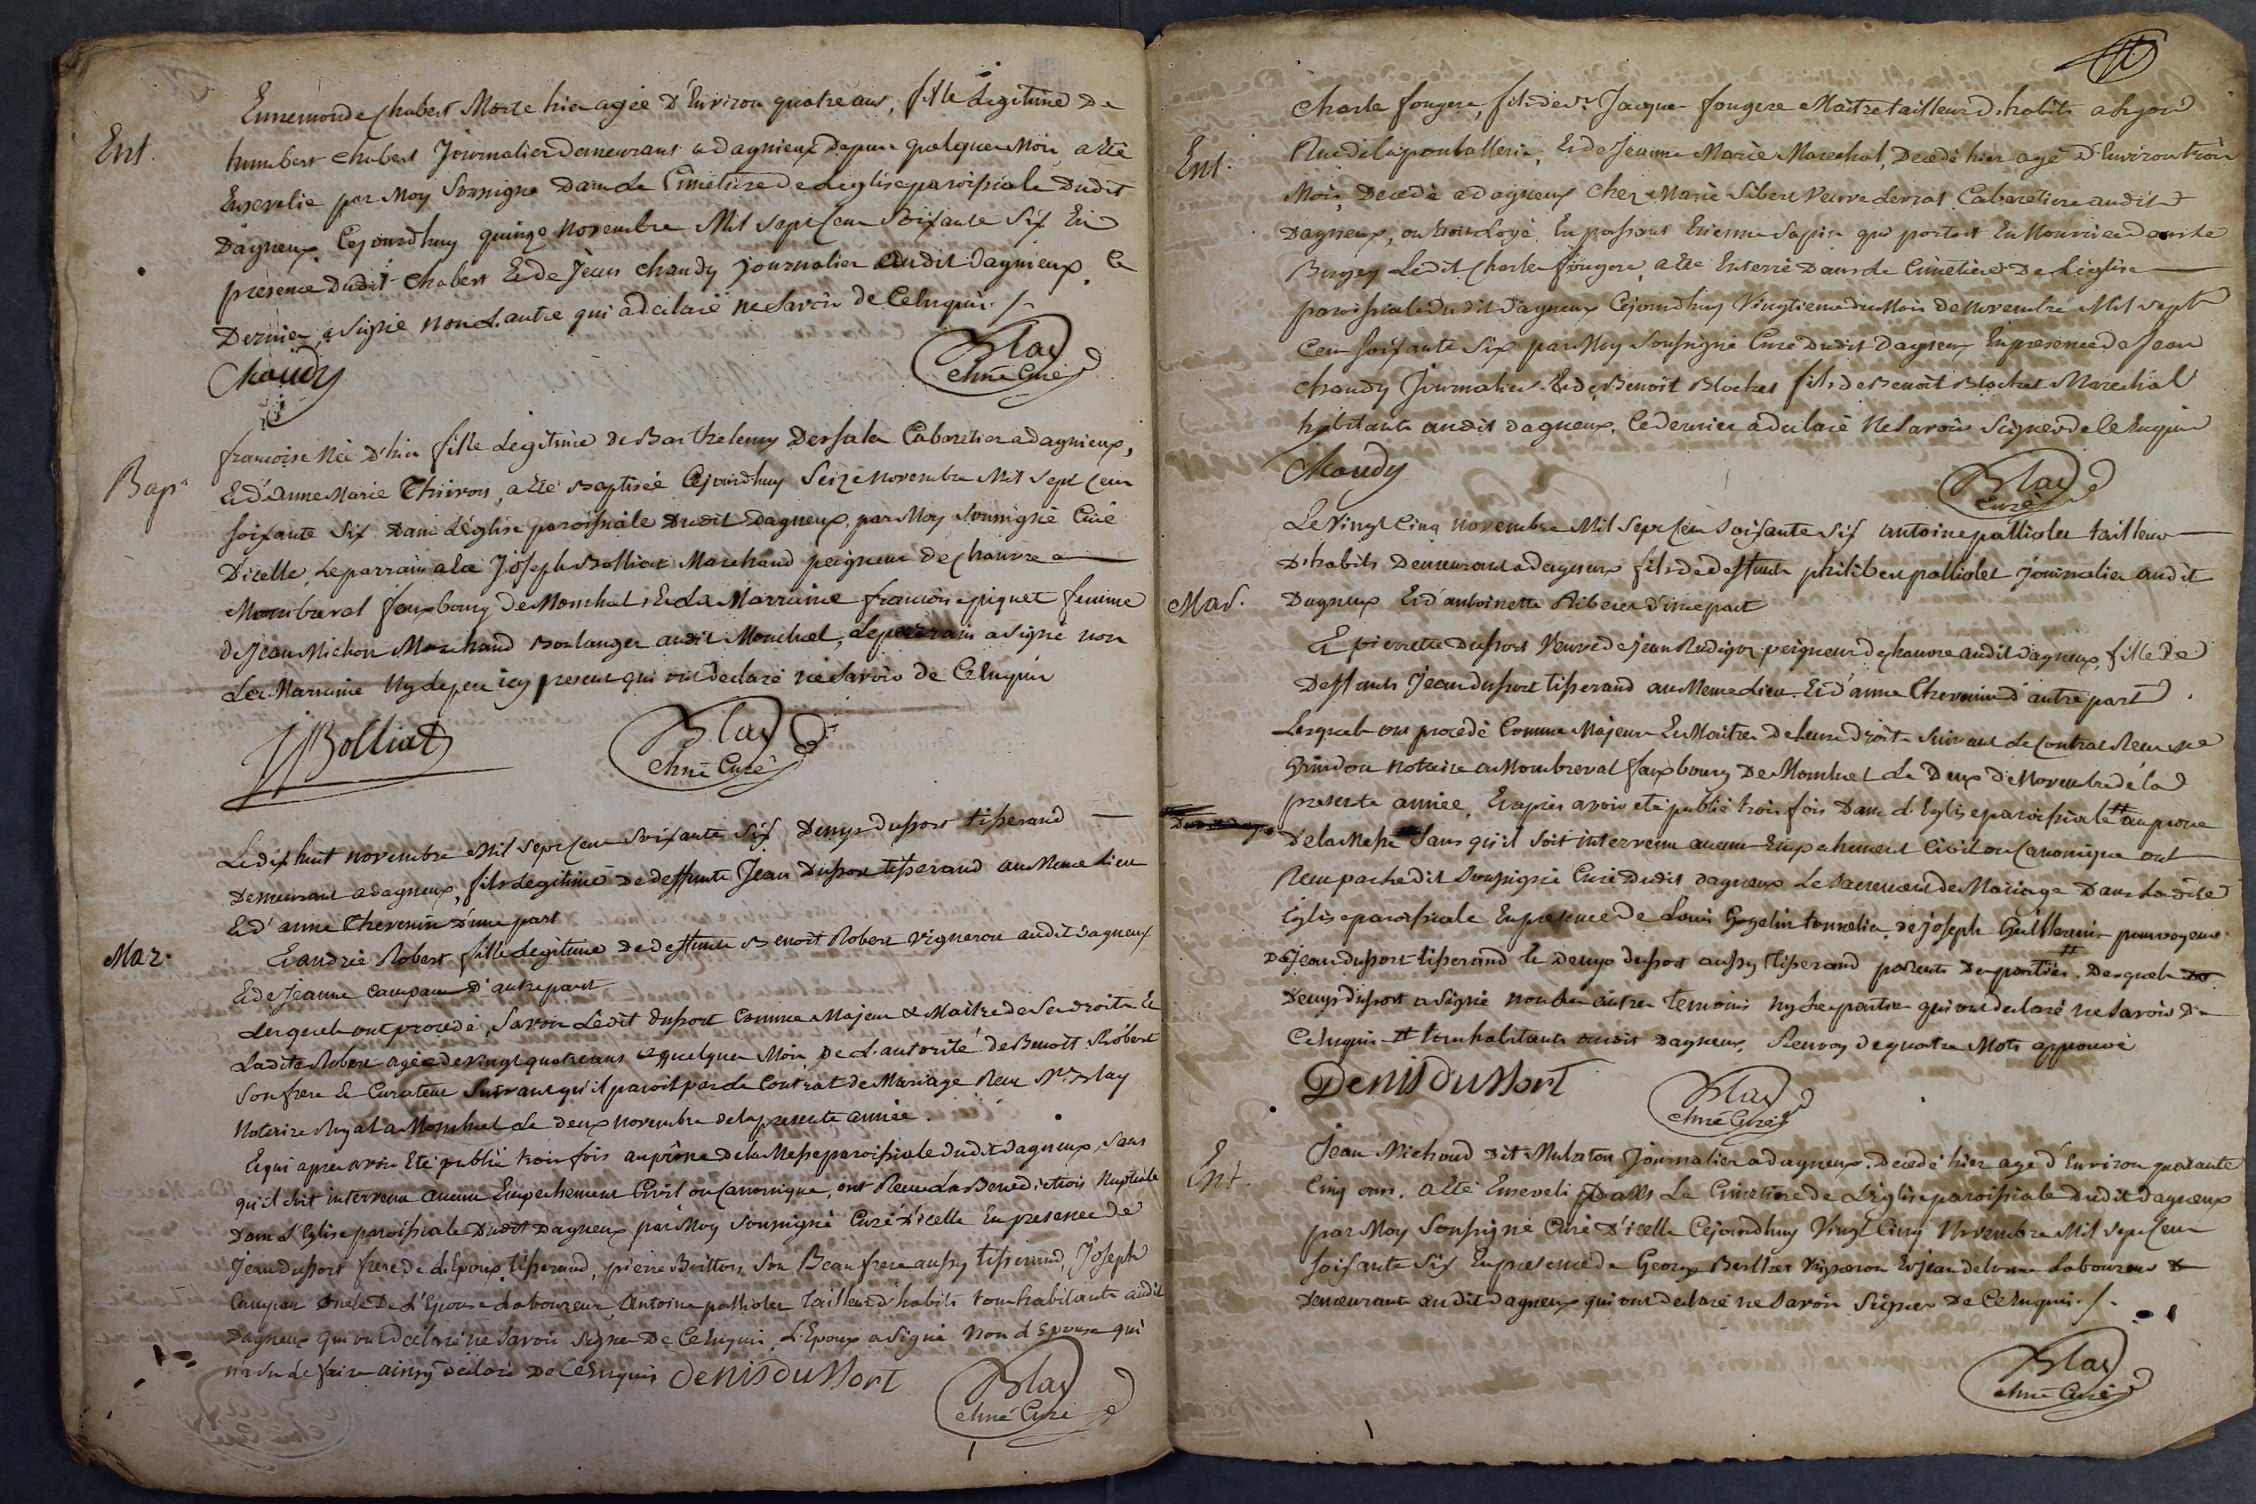 Ennemonde Chabert Morte hier agée D'Environ quatre ans, fille Legitime De
Ent.
humbert chabert Journalier Demeurant a dagnieux Depuis quelque Mois a été
Ensevelie par Moy Soussigné Dans Le Cimetiere de L'eglise paroissiale Dudit
Dagneux Cejourdhuy quinze novembre Mil sept Cent Soixante Six En
presence Dudit Chabert Et de Jean chaudy journalier Audit Dagnieux, Ce
Dernier a Signé non L'autre qui a declaré ne Savoir de Ce Enquis ./.
Chaudy
Blay
Curé
francoise Née D'hier fille Legitime de Barthelemy Dersalen Cabaretier a dagnieux,
Bap.
Et d'Anne Marie Thivron, a été Baptisée Cejourdhuy Seize novembre Mil Sept Cent
soixante Six Dans L'églisse paroissiale Dudit Dagneux, par Moy Soussigné Curé
D'icelle, Le parrain a été Joseph Bolliat Marchand peigneur de Chanvre a
Montbreval fauxbourg de Monluel, Et La Marraine francoise piquet femme
de Jean Michon Marchand Boulanger audit Monluel, Le parrain a signé non
La Marraine Ny le pere icy present qui ont declaré ne Savoir de Ce Enquis
JBolliat
Blay
Curé
Le dix huit novembre Mil Sept Cent Soixante Six Denys Dussort tisserand
Demeurant a dagneux, fils Legitime De deffunts Jean Dussort tisserand au Meme Lieu
Et d'anne Chevenin D'une part
Mar.
Et andrée Robert fille Legitime de deffunts Benoît Robert Vigneron audit Dagneux
Et de Jeanne Campan D'autre part
Lesquels ont procedé, Savoir Ledit Dussort Comme Majeur & Maitre de Ses droits Et
Ladite Robert agée de Vingt quatre ans & quelques Mois De L'autorité de Benoît Robert
Son frere Et Curateur Suivant qu'il paroit par Le Contrat de Mariage Reçu Me Blay
Notaire Royal a Monluel Le deux novembre de la presente année.
Et qui apres avoir Eté publié trois fois au prône De La Messe paroissiale dudit dagneux, Sans
qu'il Soit intervenu aucun Empechement Civil ou Canonique, ont Reçu La Benediction Nuptiale
Dans L'Eglise paroissiale Dudit Dagneux par Moy Soussigné Curé D'icelle En presence de
Jean dussort frere de L'Epoux tisserand, pierre Buitton Son Beau frere aussy tisserand, Joseph
Campan Oncle De L'Epouse Laboureur Antoine palliolet tailleur d'habits tous habitants audit
Dagneux qui ont Declaré ne Savoir Signer De Ce Enquis, L'Epoux a Signé Non L'Epouse qui
n'a Su Le faire ainsy Declaré De Ce Enquis Denis dussort
Blay
Curé
Charle fougere, fils de Sr Jacques fougere Maitre tailleur d'habits a Lyon
Ent.
Rue de la poulallerie, Et de Jeanne Marie Marechal, Decedé hier agé D'Environ trois
Mois, Decedé a dagneux Chez Marie Sibert Veuve Cabaretiere audit
Dagneux, ou Etoit Logé En passant Etienne Sapin qui portoit En Nourrice dans Le
Bugey Ledit Charle fougere, a été Enterré Dans Le Cimetiere De L'église
paroissiale dudit Dagneux Cejourdhuy Vingtieme du Mois de Novembre Mil Sept
Cent Soixante Six par Moy Soussigné Curé Dudit Dagneux En presence de Jean
chaudy Journalier Et de Benoît Blochet fils de Benoît Blochet Marechal
habitants audit dagneux. Ce dernier a declaré Ne Savoir Signer de Ce Enquis
Chaudy
Blay
Curé
Le Vingt Cinq novembre Mil Sept Cent Soixante Six antoine palliolet tailleur
D'habits Demeurant a dagneux fils de deffunts philibert palliolet journalier audit
Mar.
Dagneux Et d'antoinette Riberet d'une part
Et pierrette Dussort Veuve de Jean Rudigoz peigneur de chanvre audit dagneux fille de
Deffunts Jean dussort tisserand au Meme Lieu. Et d'anne Chevenin d'autre part
Lesquels ont procedé Comme Majeurs Et Maitres de leurs droits Suivant Le Contrat Reçu Me
Grindon notaire a Montbreval fauxbourg De Monluel Le Deux De Novembre de la
presente année, Et après avoir eté publié trois fois Dans L'Eglise paroissiale au prone
De la Messe Sans qu'il soit intervenu aucun Empechement Civil ou Canonique ont
Reçu par Le dit Soussigné Curé Dudit dagneux Le Sacrement de Mariage Dans La dite
Eglise paroissiale En presence de Louis Gogelin tonnelier, de joseph Guillermin pourvoyeur
De Jean dussort tisserand Et Denys dussort aussy tisserand parents Des parties # Desquels
Denys dussort a signé non Les autres temoins ny Les parties qui ont declaré ne Savoir De
Ce Enquis # tous habitants audit Dagneux. Renvoy de quatre Mots approuvé
Denis dussort
Blay
Curé
Jean Michoud Dit Mulaton Journalier a dagneux. Decedé hier agé d'Environ quarante
Ent.
Cinq ans. a été Enseveli Dans Le Cimetiere de L'église paroissiale dudit Dagneux
par Moy Soussigné Curé D'icelle Cejourdhuy Vingt Cinq Novembre Mil Sept Cent
Soixante Six En presence de George Berthet Vigneron Et jean delorme Laboureur
Demeurants audit dagneux qui ont declaré ne Savoir Signer De Ce Enquis ./.
Blay
Curé